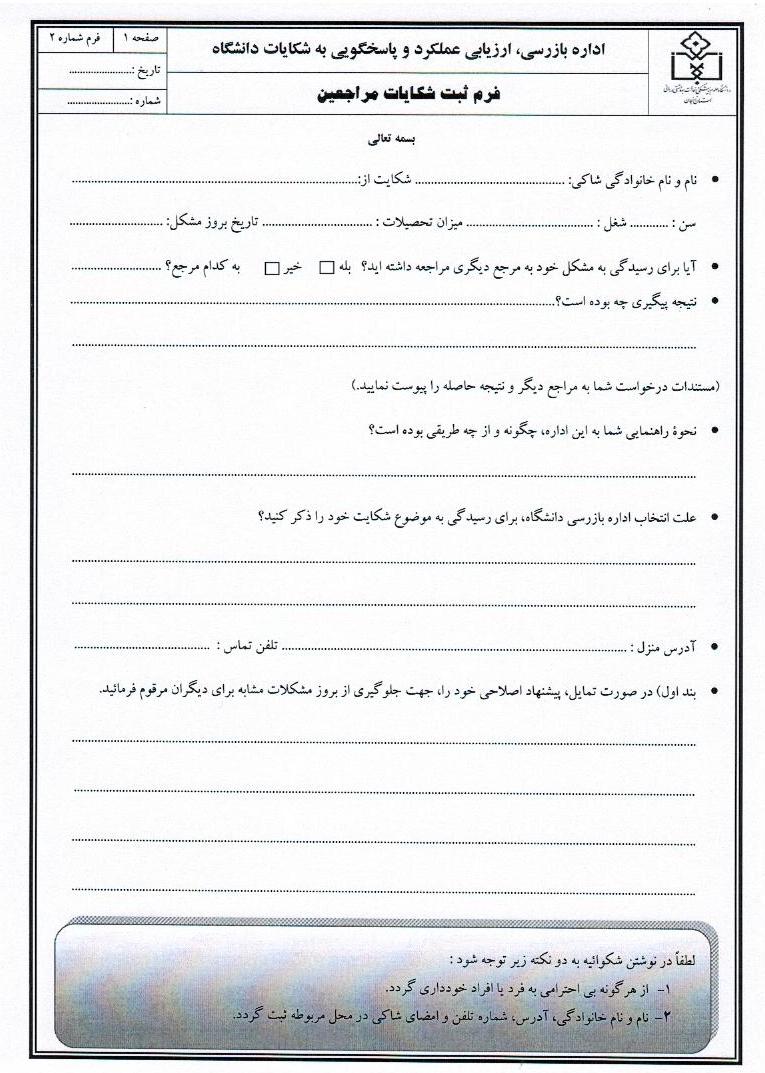 اداره بازرسی، ارزیابی عملکرد و پاسخگویی به شکایات دانشگاه
فرم ثبت شکایات مراجعین
صفحه ۱
فرم شماره ۲
تاریخ :......................
شماره :......................
بسمه تعالی
• نام و نام خانوادگی شاکی: ...................................... شکایت از:........................................................................
سن : .......... شغل : ................................ میزان تحصیلات : ............................ تاریخ بروز مشکل: ........................
• آیا برای رسیدگی به مشکل خود به مرجع دیگری مراجعه داشته اید؟ بله □ خیر □ به کدام مرجع؟ .......................
• نتیجه پیگیری چه بوده است؟..........................................................................................................................
................................................................................................................................................................
(مستندات درخواست شما به مراجع دیگر و نتیجه حاصله را پیوست نمایید.)
• نحوۀ راهنمایی شما به این اداره، چگونه و از چه طریقی بوده است؟
................................................................................................................................................................
• علت انتخاب اداره بازرسی دانشگاه، برای رسیدگی به موضوع شکایت خود را ذکر کنید؟
................................................................................................................................................................
................................................................................................................................................................
• آدرس منزل : ........................................................................................ تلفن تماس : ..................................
• بند اول) در صورت تمایل، پیشنهاد اصلاحی خود را، جهت جلوگیری از بروز مشکلات مشابه برای دیگران مرقوم فرمائید.
................................................................................................................................................................
................................................................................................................................................................
................................................................................................................................................................
................................................................................................................................................................
لطفاً در نوشتن شکوائیه به دو نکته زیر توجه شود :
۱- از هرگونه بی احترامی به فرد یا افراد خودداری گردد.
۲- نام و نام خانوادگی، آدرس، شماره تلفن و امضای شاکی در محل مربوطه ثبت گردد.